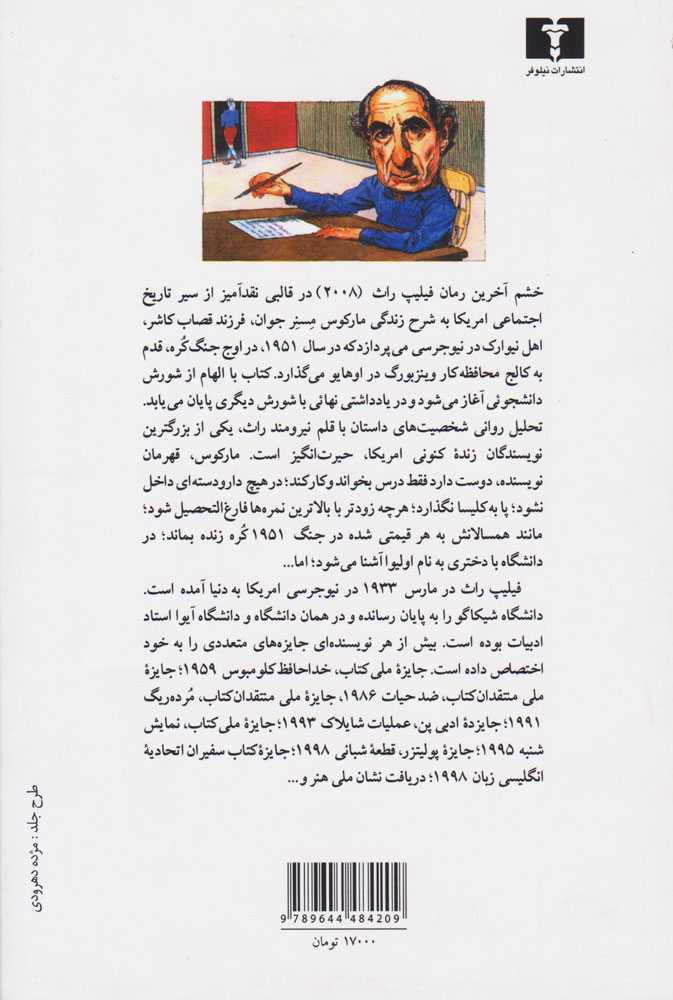 انتشارات نیلوفر
خشم آخرین رمان فیلیپ راث (۲۰۰۸) در قالبی نقدآمیز از سیر تاریخ
اجتماعی امریکا به شرح زندگی مارکوس مِسنِر جوان، فرزند قصاب کاشر،
اهل نیوارک در نیوجرسی می‌پردازد که در سال ۱۹۵۱، در اوج جنگ کُره، قدم
به کالج محافظه‌کار وینزبورگ در اوهایو می‌گذارد. کتاب با الهام از شورش
دانشجوئی آغاز می‌شود و در یادداشتی نهائی با شورش دیگری پایان می‌یابد.
تحلیل روانی شخصیت‌های داستان با قلم نیرومند راث، یکی از بزرگترین
نویسندگان زندهٔ کنونی امریکا، حیرت‌انگیز است. مارکوس، قهرمان
نویسنده، دوست دارد فقط درس بخواند و کار کند؛ در هیچ دارودسته‌ای داخل
نشود؛ پا به کلیسا نگذارد؛ هرچه زودتر با بالاترین نمره‌ها فارغ‌التحصیل شود؛
مانند همسالانش به هر قیمتی شده در جنگ ۱۹۵۱ کُره زنده بماند؛ در
دانشگاه با دختری به نام اولیوا آشنا می‌شود؛ اما...
فیلیپ راث در مارس ۱۹۳۳ در نیوجرسی امریکا به دنیا آمده است.
دانشگاه شیکاگو را به پایان رسانده و در همان دانشگاه و دانشگاه آیوا استاد
ادبیات بوده است. بیش از هر نویسنده‌ای جایزه‌های متعددی را به خود
اختصاص داده است. جایزهٔ ملی کتاب، خداحافظ کلومبوس ۱۹۵۹؛ جایزهٔ
ملی منتقدان کتاب، ضد حیات ۱۹۸۶، جایزهٔ ملی منتقدان کتاب، مُرده‌ریگ
۱۹۹۱؛ جایزدهٔ ادبی پن، عملیات شایلاک ۱۹۹۳؛ جایزهٔ ملی کتاب، نمایش
شنبه ۱۹۹۵؛ جایزهٔ پولیتزر، قطعهٔ شبانی ۱۹۹۸؛ جایزهٔ کتاب سفیران اتحادیهٔ
انگلیسی زبان ۱۹۹۸؛ دریافت نشان ملی هنر و...
طرح جلد : مژده دهرودی
9 789644 484209
۱۷۰۰۰ تومان